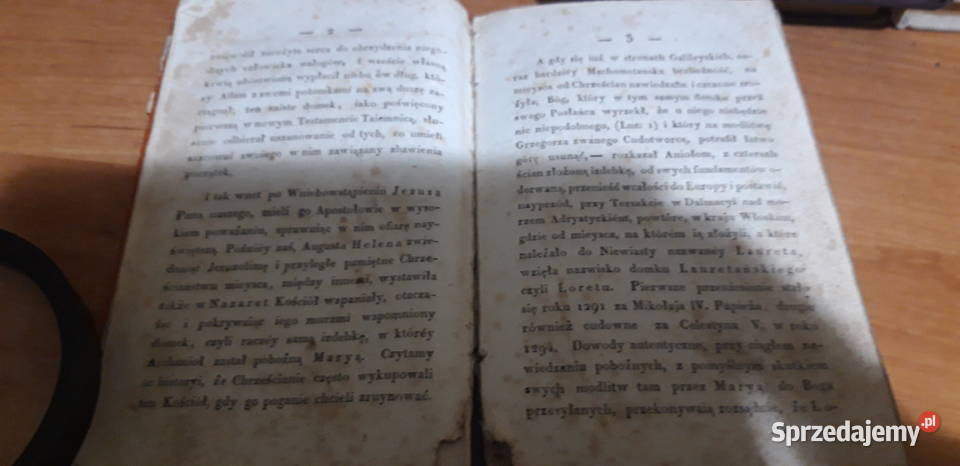 — 2 —
serca do obrzydzenia niego-
dnych człowieka nałogów, i wreście własną
krwią wypłacił dług, któ-
ry Adam z swemi potomkami na swą duszę za-
ciągnął; ten zaiste domek, iako poświęcony
pierwszą w nowym Testamencie Taiemnicą, słu-
sznie odbierał uszanowanie od tych, co umieli
szacować swoiego w nim zawiązany zbawienia
początek.
I tak wnet po Wniebowstąpieniu Jezusa
Pana naszego, mieli go Apostołowie w wyso-
kiem poważaniu, sprawuiąc w nim ofiarę nay-
świętszą. Pózniéy zaś, Augusta Helena zwie-
dzaiąc Jerozolimę i przyległe pamiętne Chrze-
ściaństwu mieysca, między innemi, wystawiła
także w Nazaret Kościół wspaniały, otacza-
iąc i pokrywaiąc iego murami wspomniony
domek, czyli raczéy samą izdebkę, w któréy
Archanioł zastał pobożną Maryą. Czytamy
w historyi, że Chrześcianie często wykupowali
ten Kościół, gdy go poganie chcieli zruynować.
— 3 —
A gdy się iuż w stronach Galileyskich, co-
raz bardziéy Machometańska bezbożność, na
mieysca od Chrześcian nawiedzane i czczone sro-
żyła; Bóg, który w tym samym domku przez
swego Posłańca wyrzekł, że u niego niebędzie
nic niepodobnego, (Luc: 1) i który na modlitwę
Grzegorza zwanego Cudotworcę, potrafił łatwo
górę usunąć, — rozkazał Aniołom, z czterech
ścian złożoną izdebkę, od swych fundamentów o-
derwaną, przenieść wcałości do Europy i postawić,
nayprzód, przy Tersakcie w Dalmacyi nad mo-
rzem Adryatyckiém, powtóre, w kraju Włoskim,
gdzie od mieysca, na którém ią złożyli, a które
należało do Niewiasty nazwanéy Laureta,
wzięła nazwisko domku Lauretańskiego
czyli Loretu. Pierwsze przeniesienie stało
się roku 1291 za Mikołaja IV. Papieża, drugie
również cudowne za Celestyna V. w roku
1294. Dowody autentyczne, przy ciągłem na-
wiedzaniu pobożnych, z pomyślnym skutkiem
swych modlitw tam przez Maryą do Boga
przesyłanych, przekonywaią rozsądnie, że Lo-
Sprzedajemy.pl